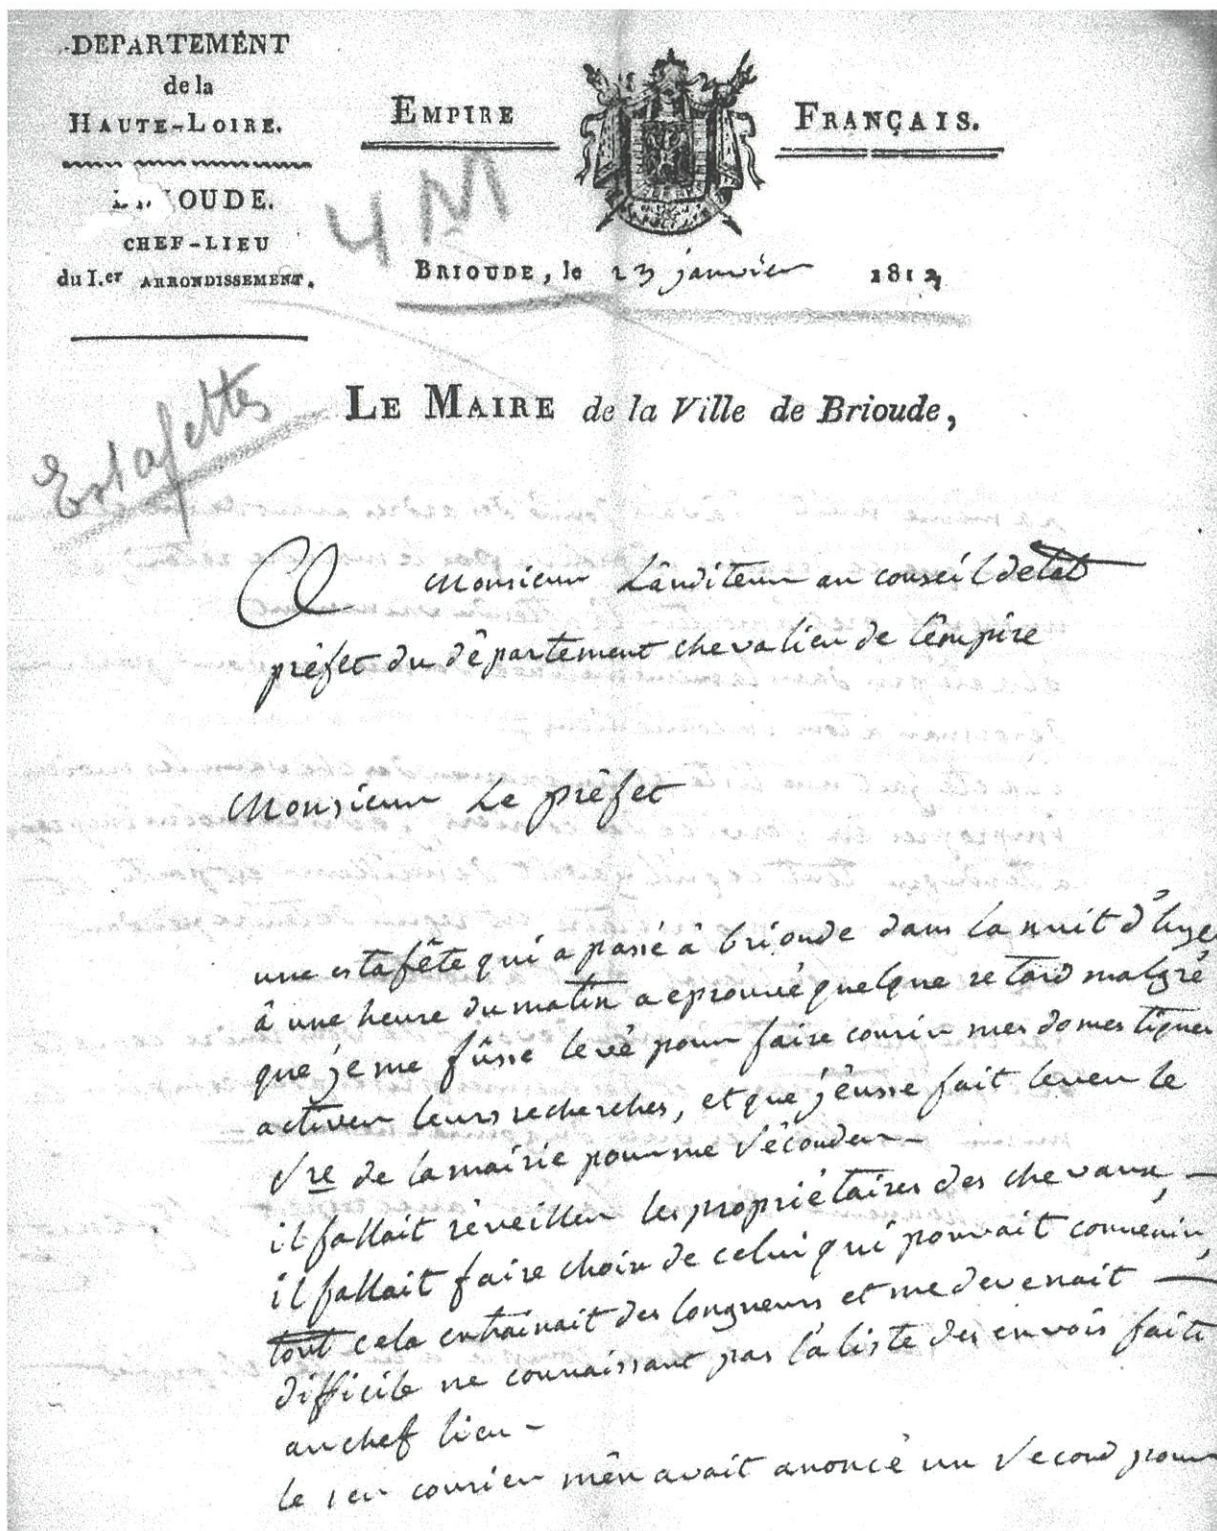 DEPARTEMENT
de la
HAUTE-LOIRE.
OUDE.
CHEF-LIEU
du I.er ARRONDISSEMENT.
EMPIRE FRANÇAIS.
4 M
BRIOUDE, le 23 janvier 181
Estafettes
LE MAIRE de la Ville de Brioude,
A Monsieur L'âuditeur au conseil detat
prêfet du dêpartement chevalier de l'êmpire
Monsieur Le prêfet
une estafête qui a passé â brioude dans la nuit d'hyer
â une heure du matin a eprouvé quelque retard malgré
que je me fûsse levé pour faire courir mes domestiques
activer leurs recherches, et que j'êusse fait lever le
Sre de la mairie pour me sêconder -
il fallait rêveiller les propriétaires des chevaux, -
il fallait faire choix de celui qui pouvait convenir,
tout cela entrainait des longueurs et me devenait -
difficile ne connaissant pas la liste des envois faite
au chef lieu -
le 1er courier mên avait anoncé un second pour